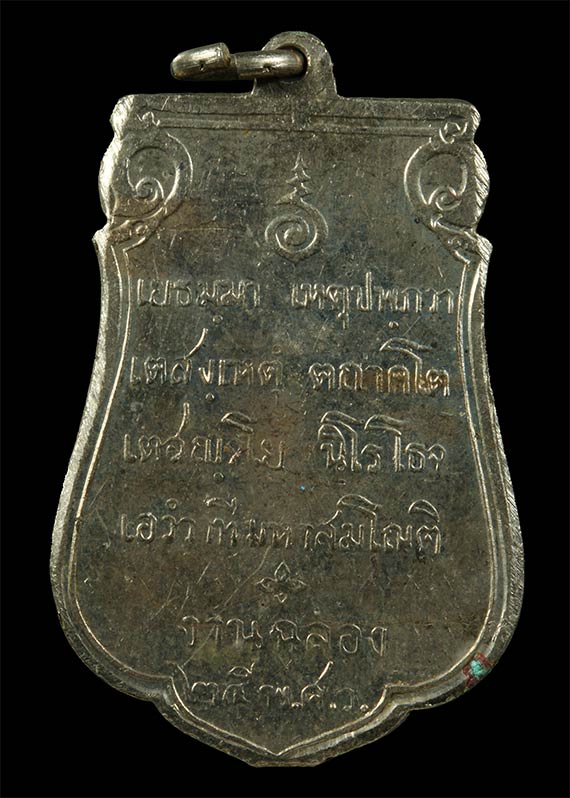 เยธมฺมา เหตุปฺปภฺวา
เตสํเหตุํ ตถาคโต
เตสญฺจโย นิโรโธจ
เอวํวาทีมหาสมโณติ
งานฉลอง
๒๕ พ.ศ.ว.